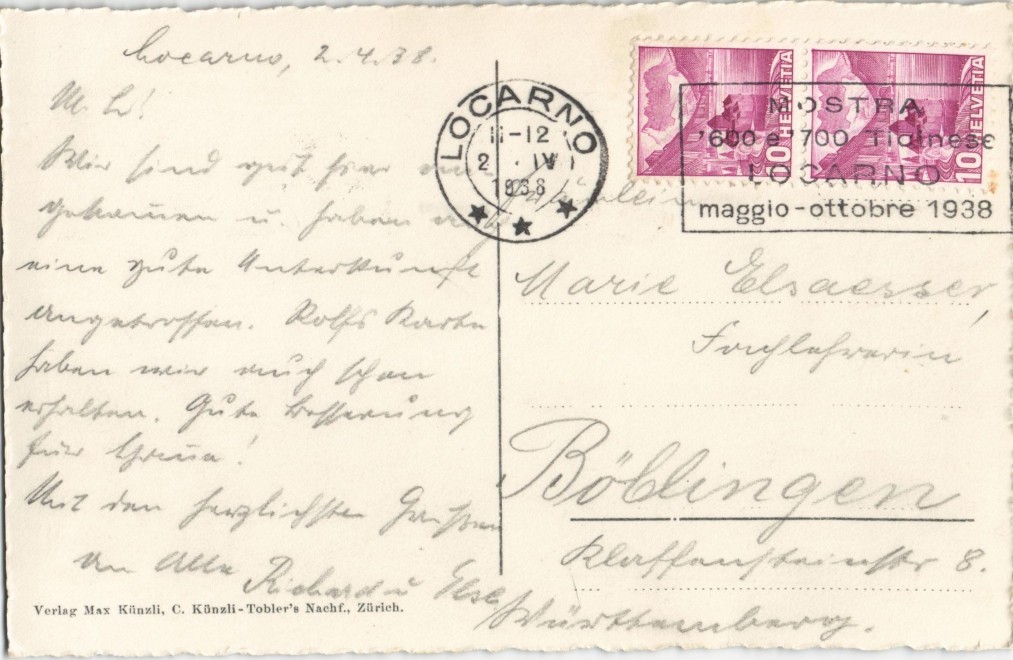 Locarno, 2.4.38.
M. L!
Wir sind gut hier an-
gekommen u. haben auch
eine gute Unterkunft
angetroffen. Rolfs Karte
haben wir auch schon
erhalten. Gute Besserung
für
Mit den herzlichsten Grüssen
an Alle Richard u Else
Verlag Max Künzli, C. Künzli-Tobler's Nachf., Zürich.
LOCARNO
11-12
2 . IV
1938
10 HELVETIA
10 HELVETIA
MOSTRA
'600 e 700 Ticinese
LOCARNO
maggio-ottobre 1938
Fräulein
Marie Elsaesser,
Fachlehrerin
Böblingen
Klaffensteinstr 8.
Württemberg.